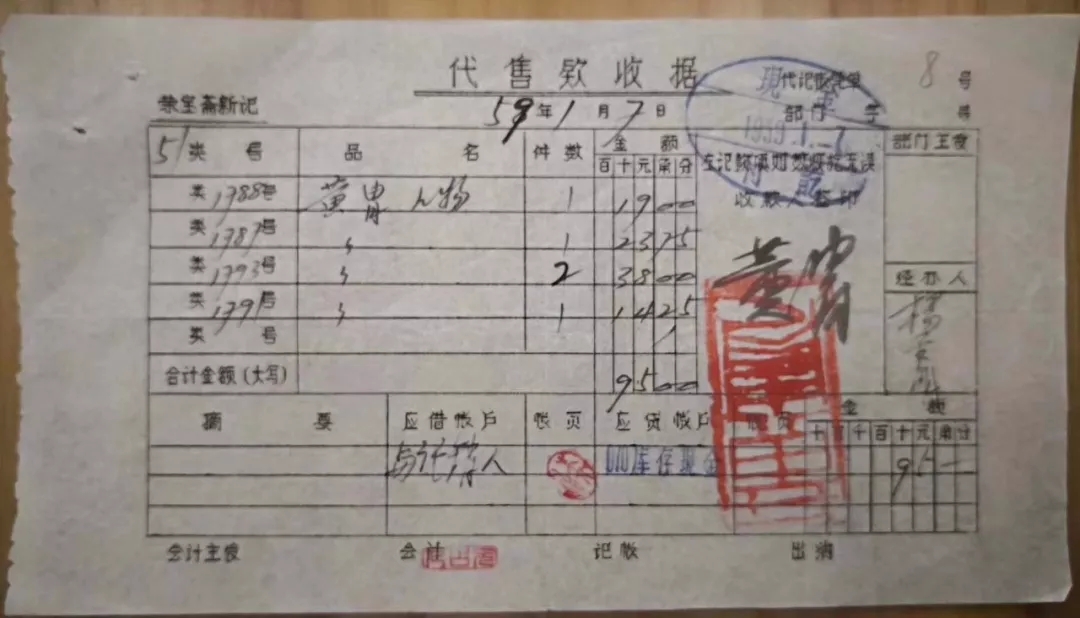 代售款收据
8号
荣宝斋新记
59年1月7日
代记账凭单
部门 字 号
1959.1.7
51类号 品名 件数 金额 部门主管
百十元角分
收款人签印
类1788号 黄胄人物 1 1900
类1787号 〃 1 2375
类1793号 〃 2 3800
类1791号 〃 1 1425
类 号
黄胄
经办人
合计金额(大写) 9500
摘要 应借帐户 帐页 应贷帐户 帐页 金额
十千百十元角分
人 库存现金 95—
会计主管 会计 记帐 出纳